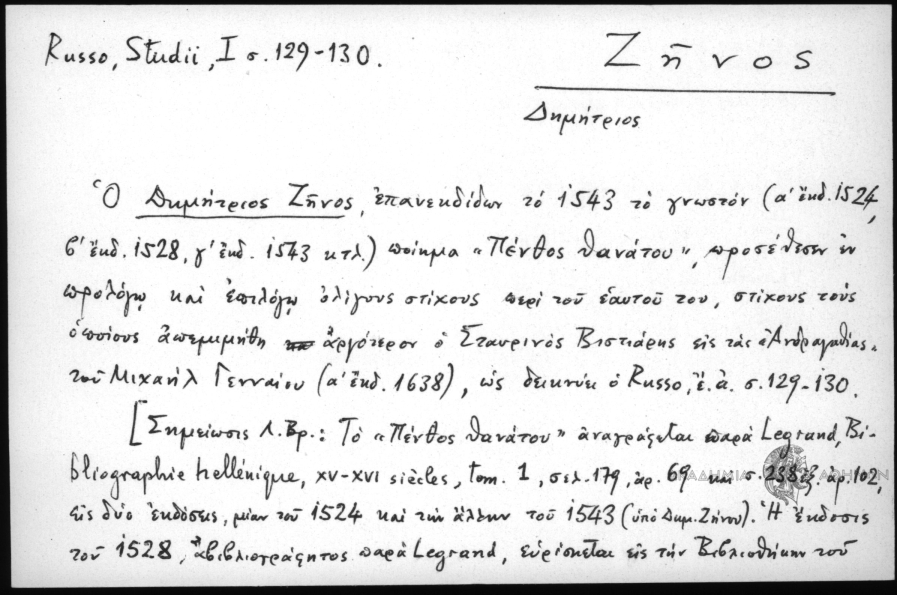 Russo, Studii, I σ. 129-130.
Ζῆνος
Δημήτριος
Ὁ Δημήτριος Ζῆνος, ἐπανεκδίδων τό 1543 τό γνωστόν (α' ἔκδ. 1524,
β' ἔκδ. 1528, γ' ἔκδ. 1543 κτλ.) ποίημα "Πένθος θανάτου", προσέθεσεν ἐν
προλόγῳ καί ἐπιλόγῳ ὀλίγους στίχους περί τοῦ ἑαυτοῦ του, στίχους τούς
ὁποίους ἀπεμιμήθη ἀργότερον ὁ Σταυρινός Βιστιάρης εἰς τάς "Ἀνδραγαθίας"
τοῦ Μιχαήλ Γενναίου (α' ἔκδ. 1638), ὡς δεικνύει ὁ Russo, ἔ.ἀ. σ. 129-130.
[Σημείωσις Λ. Βρ.: Τό "Πένθος θανάτου" ἀναγράφεται παρά Legrand, Bi-
bliographie hellénique, XV-XVI siècles, tom. 1, σελ. 179, ἀρ. 69 καί σ. 238 ἑξ. ἀρ. 102,
εἰς δύο ἐκδόσεις, μίαν τοῦ 1524 καί τήν ἄλλην τοῦ 1543 (ὑπό Δημ. Ζήνου). Ἡ ἔκδοσις
τοῦ 1528, ἀβιβλιογράφητος παρά Legrand, εὑρίσκεται εἰς τήν Βιβλιοθήκην τοῦ
ΑΚΑΔΗΜΙΑ ΑΘΗΝΩΝ